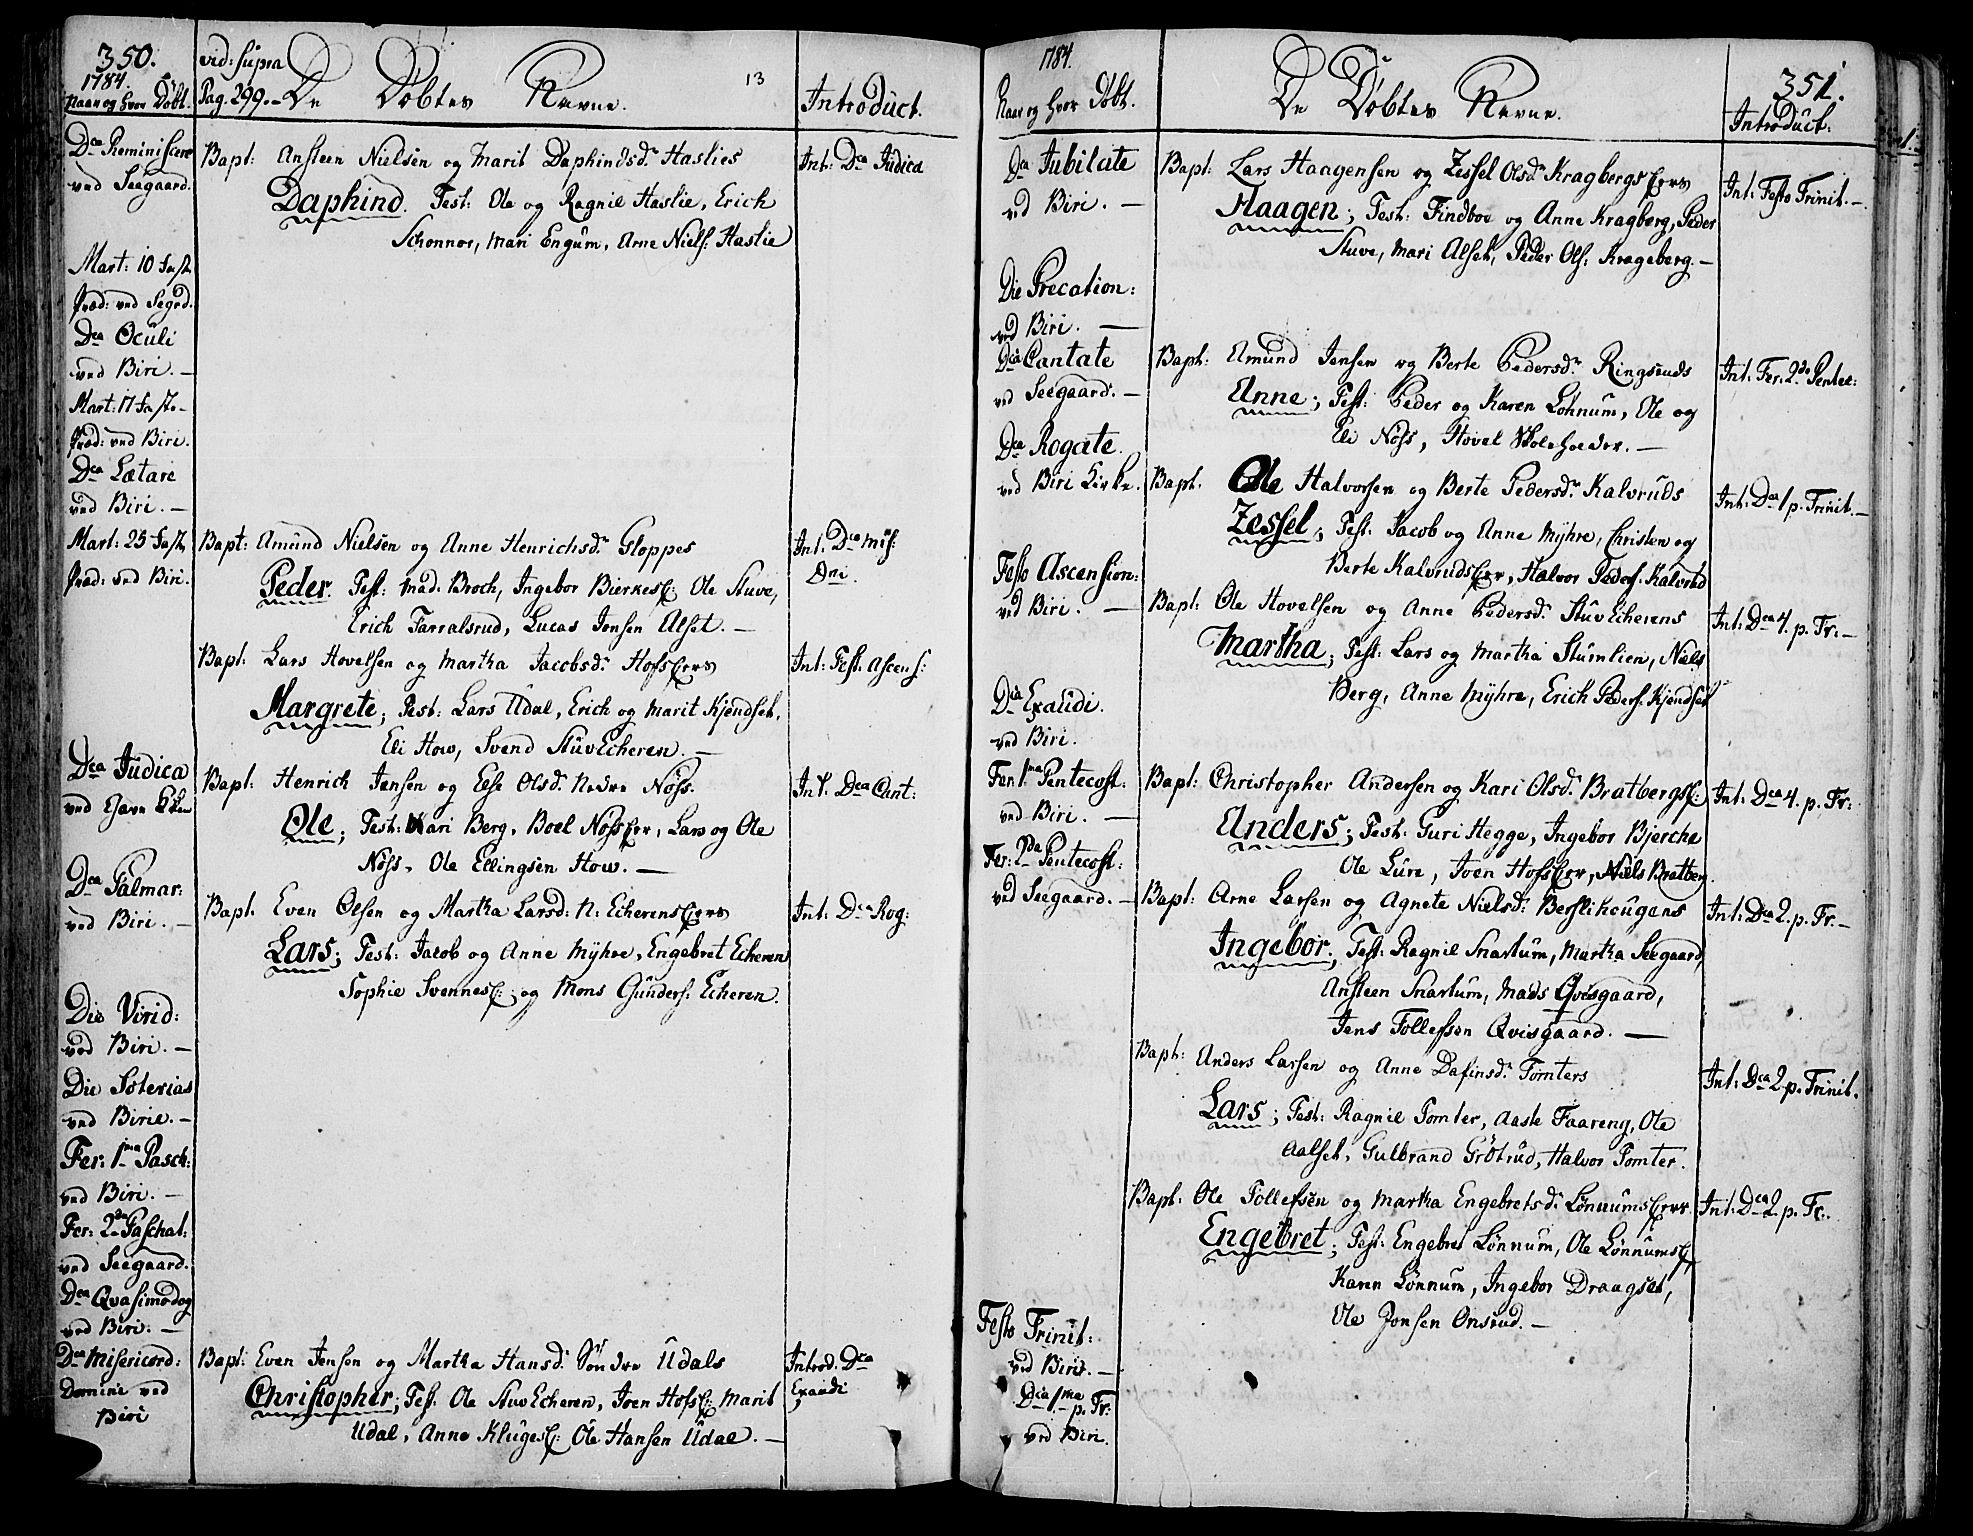 350.
1784.
Naar og hvor Döbt.
vid: supra
Pag. 299.
De Döbtes Navne.
13
Introduct.
Dca Reminiscere
ved Seegaard.
Bapt: Ansteen Nielsen og Marit Daphindsd. Haslies
Daphind. Test: Ole og Ragnil Haslie, Erich
Schonnor, Mari Engum, Arne Niels: Haslie
Int: Dca Judica
Mart: 10 Faste
Præd: ved Segrd.
Dca Oculi
ved Biri. —
Mart: 17 Faste-
Præd: ved Biri.
Dca Lætare
ved Biri. —
Mart: 25 Faste
Præd: ved Biri.
Bapt: Amund Nielsen og Anne Henrichsd. Gloppes
Peder. Test: Mad. Broch, Ingebor Bierkes: Ole Stuve,
Erich Farralsrud, Lucas Jonsen Alset. —
Int. Dca Mis:
Dni.
Bapt: Lars Hovelsen og Martha Jacobsd. Hofs
Margrete; Test: Lars Udal, Erich og Marit Kjendset,
Eli How, Svend StuvEcheren. —
Int: Fest. Ascens:
Dca Judica
ved
Bapt: Henrich Jensen og Else Olsd. Nedre Nöss.
Ole; Test: Kari Berg, Boel Nöss, Lars og Ole
Nöss, Ole Ellingsen How. —
Int. Dca Cant:
Dca Palmar:
ved Biri. —
Bapt. Even Olsen og Martha Larsd: N: Echerens
Lars; Test: Jacob og Anne Myhre, Engebret Echeren
Sophie Svennes: og Mons Gunders: Echeren.
Int: Dca Rog:
Die Virid:
ved Biri. —
Die Soterias
ved Birie. —
Fer: 1ma Pasch:
ved Biri. —
Fer: 2da Paschat:
ved Seegaard.
Dca Qvasimodog
ved Biri: —
Dca Misericord:
Domini ved
Biri
Bapt: Even Jensen og Martha Hansd. Söndre Udals
Christopher; Test. Ole StuvEcheren, Joen Hofs: Marit
Udal, Anne Kluges: Ole Hansen Udal. —
Introd: Dca
Exaudi
1784.
Naar og hvor Döbt.
De Döbtes Navne.
351.
Introduct:
Dca Jubilate
ved Biri. —
Bapt: Lars Haagensen og Zessel Olsd. Kragbergs
Haagen; Test: Findboe og Anne Kragberg, Peder
Stuve, Mari Alset, Peder Ols: Krageberg. —
Int: Festo Trinit. —
Die Precation:
ved Biri. —
Dca Cantate
ved Seegaard. —
Bapt: Amund Jensen og Berte Pedersd. Ringsruds
Anne; Test: Peder og Karen Lönnum, Ole og
Eli Nöss, Hovel Skoleholder. —
Int. Fer: 2da Pentec:
Dca Rogate.
ved Biri Kirke.
Bapt. Ole Halvorsen og Berte Pedersd. Kalvruds
Zessel, Test: Jacob og Anne Myhre, Christen og
Berte Kalvruds, Halvor Peders: Kalvrud
Int: Dca 1 p. Trinit. —
Festo Ascension:
ved Biri. —
Bapt: Ole Hovelsen og Anne Pedersd. StuvEcherens
Martha; Test: Lars og Martha Stumlien, Niels
Berg, Anne Myhre, Erich Peders: Kjendset
Int: Dca 4. p. Tr: —
Dca Exaudi.
ved Biri.
Fer. 1ma Pentecost:
ved Biri. —
Bapt: Christopher Andersen og Kari Olsd. Bratbergs:
Anders; Test: Guri Hegge, Ingebor Bjerche
Ole Lure, Joen Hofs, Niels Bratber.
Int: Dca 4. p. Tr:
Fer: 2da Pentecost:
ved Seegaard. —
Bapt: Arne Larsen og Agnete Nielsd. Berslihougens
Ingebor; Test: Ragnil Snartum, Martha Seegaard,
Ansteen Snartum, Mads Qvisgaard,
Jens Tollefsen Qvisgaard. —
Int: Dca 2. p. Tr. —
Bapt: Anders Larsen og Anne Dafinsd. Tomters
Lars; Test: Ragnil Tomter, Aaste Faareng, Ole
Aalset, Gulbrand Grötrud, Halvor Tomter.
Int: Dca 2 p. Trinit.
Bapt. Ole Tollefsen og Martha Engebretsd. Lönnums
Engebret; Test: Engebret Lönnum, Ole Lönnums
Karen Lönnum, Ingebor Draagset,
Ole Jonsen Onsrud. —
Int: Dca 2. p. Tr:
Festo Trinit:
ved Biri. —
Dca 1ma p. Tr:
ved Biri.